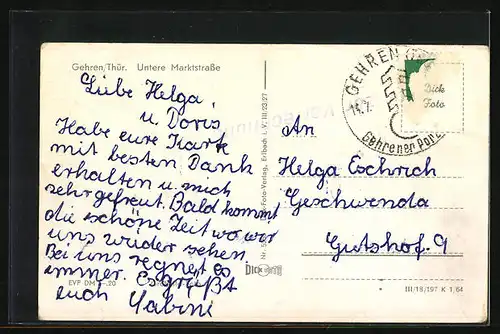 Gehren/Thür. Untere Marktstraße
Liebe Helga,
u. Doris
Habe eure Karte
mit besten Dank
erhalten u. mich
sehr gefreut. Bald kommt
die schöne Zeit wo wir
uns wieder sehen.
Bei uns regnet es
immer. Es grüßt
euch Sabine
EVP DM -.20
DICK
-Foto-Verlag, Erlbach i. V. III/23/27
GEHREN
Gehrener Porz
Dick
Foto
An
Helga Eschrich
Geschwenda
Gutshof. 9
III/18/197 K 1,64